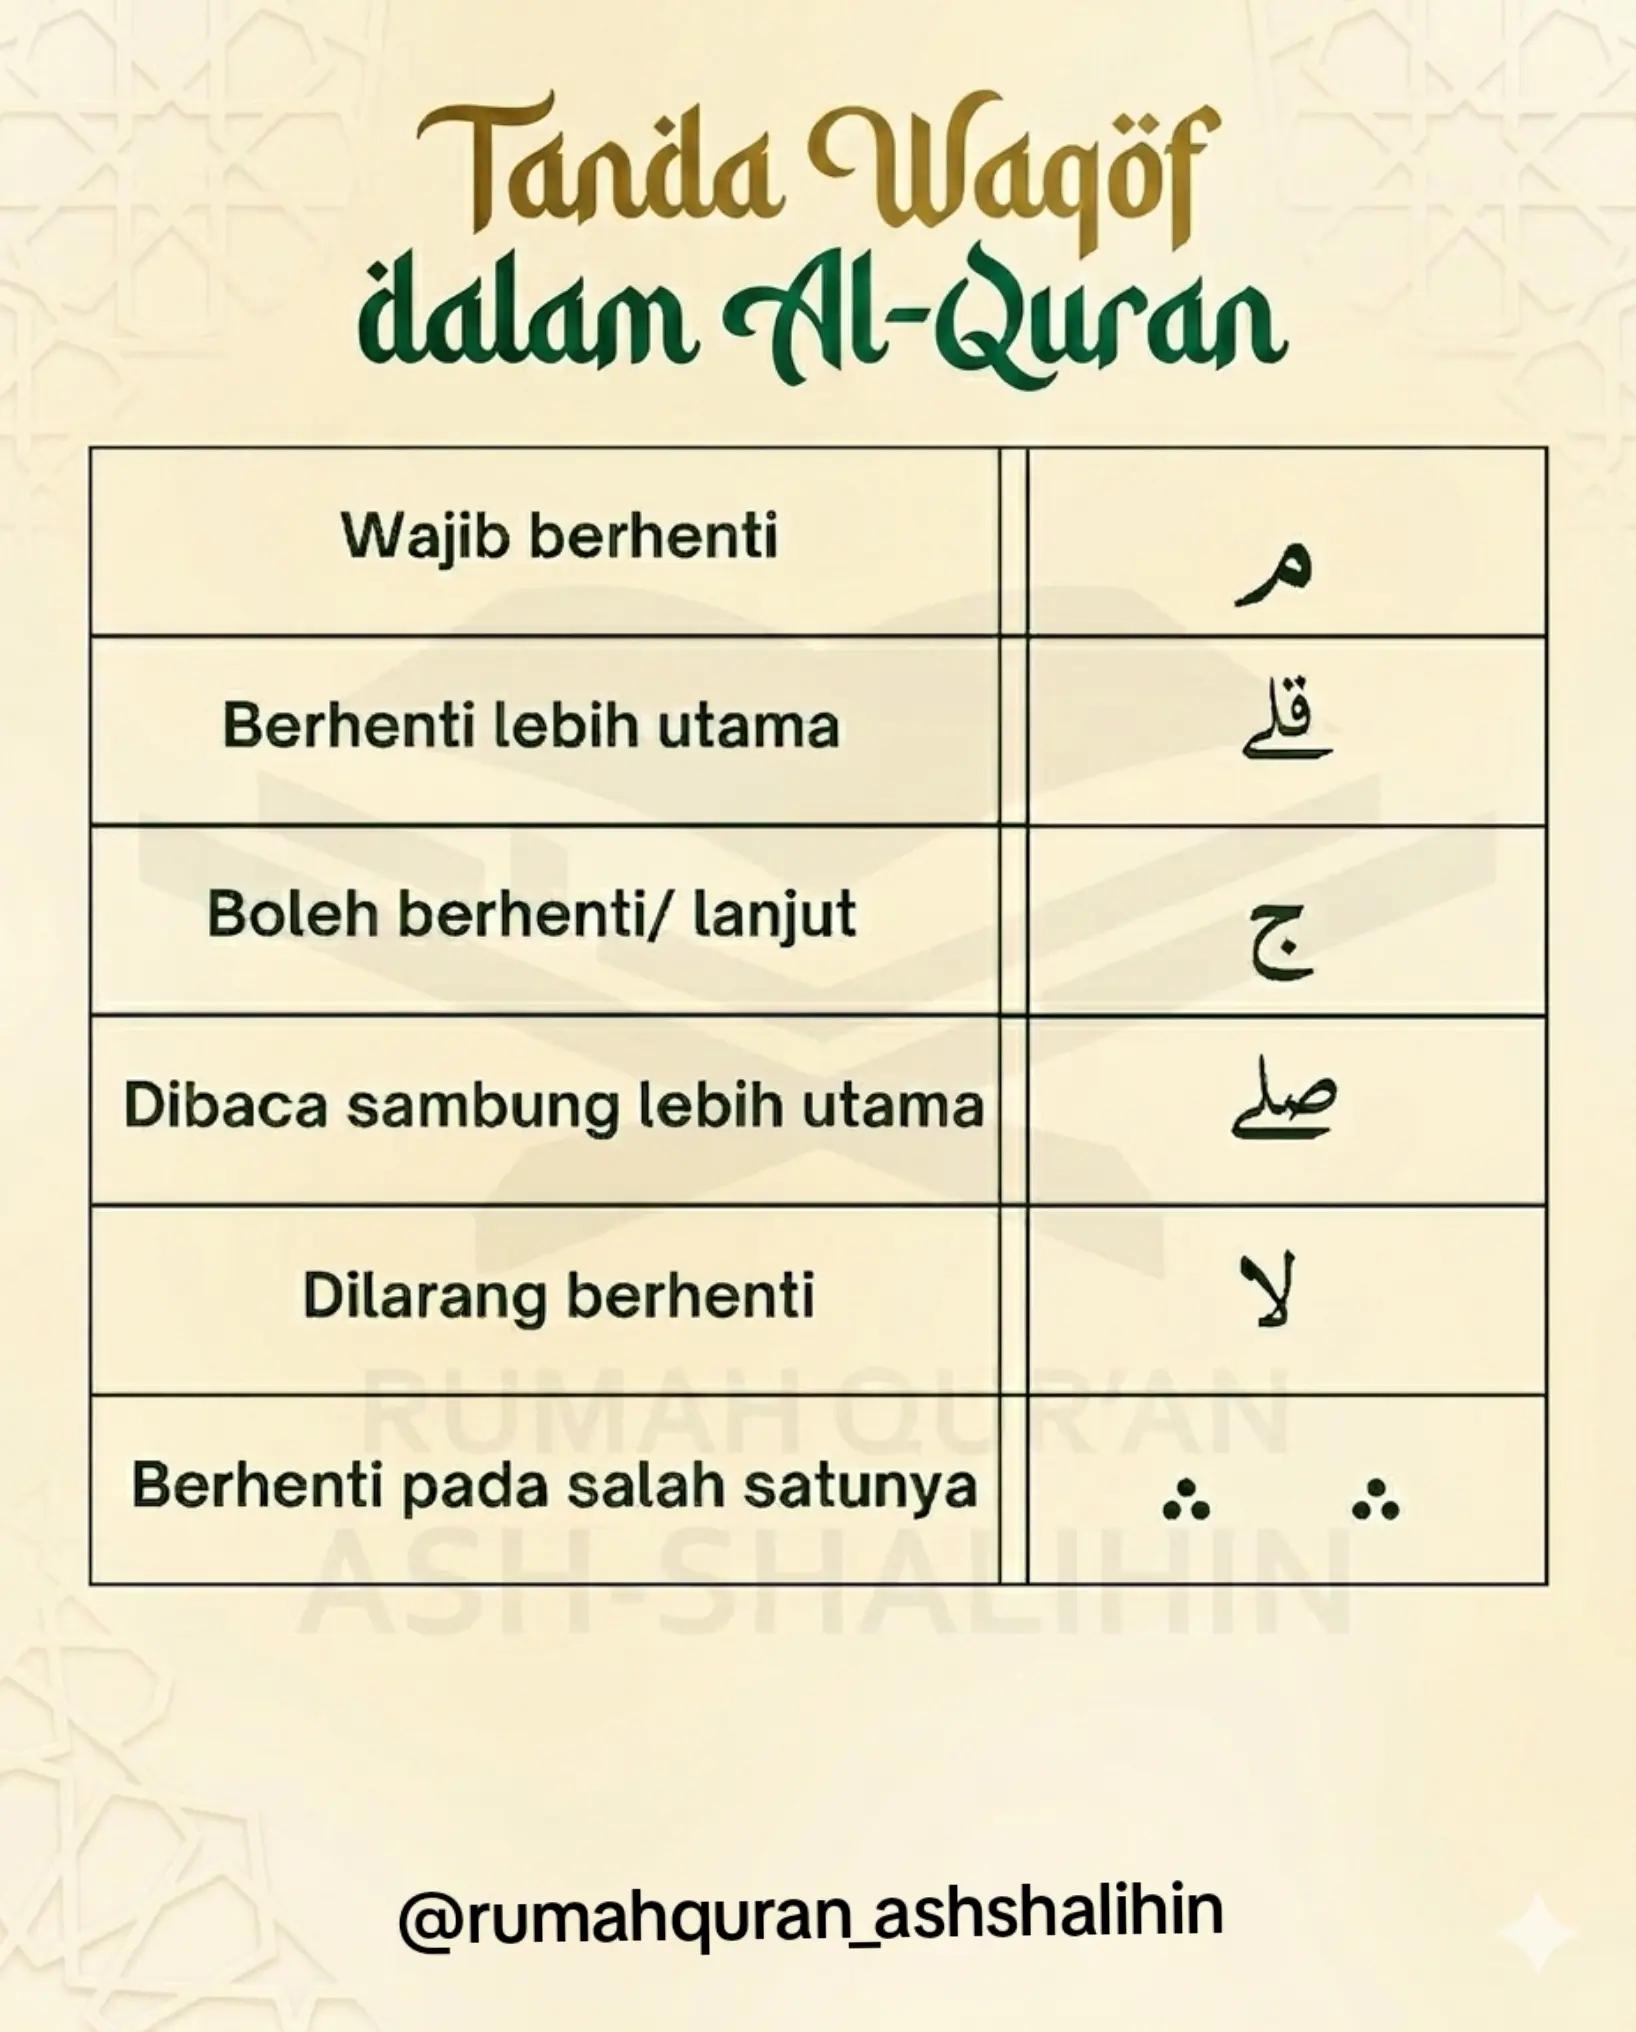 Tanda Waqöf
dalam Al-Quran
Wajib berhenti م
Berhenti lebih utama قلے
Boleh berhenti/ lanjut ج
Dibaca sambung lebih utama صلے
Dilarang berhenti لا
Berhenti pada salah satunya ∴ ∴
RUMAH QUR'AN
ASH-SHALIHIN
@rumahquran_ashshalihin